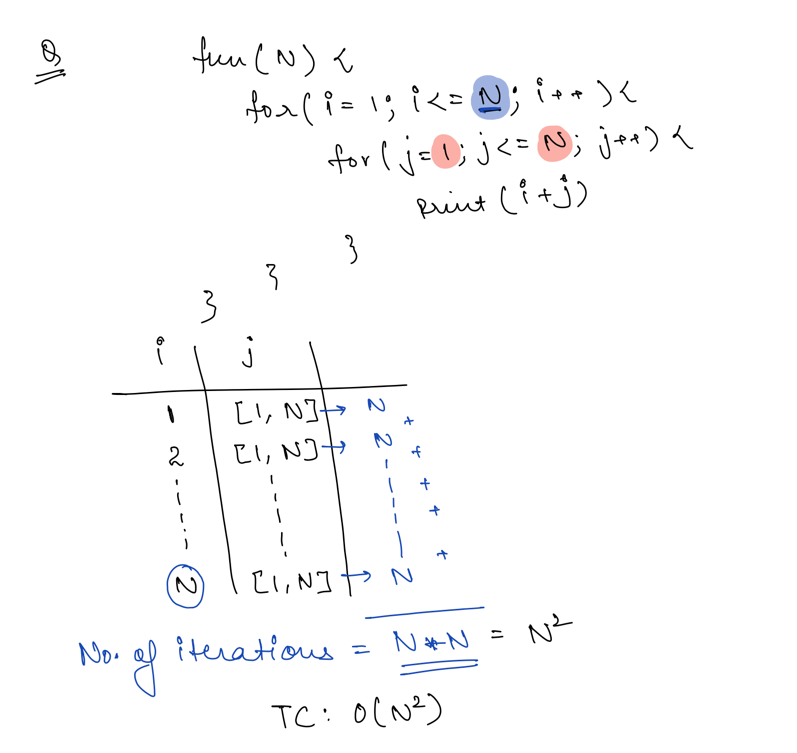 Q
fun(N) {
for(i = 1; i <= N; i++) {
for(j = 1; j <= N; j++) {
print(i+j)
}
}
}
i j
1 [1, N] → N
+
2 [1, N] → N
+
+
+
+
N [1, N] → N
No. of iterations = N * N = N²
TC: O(N²)